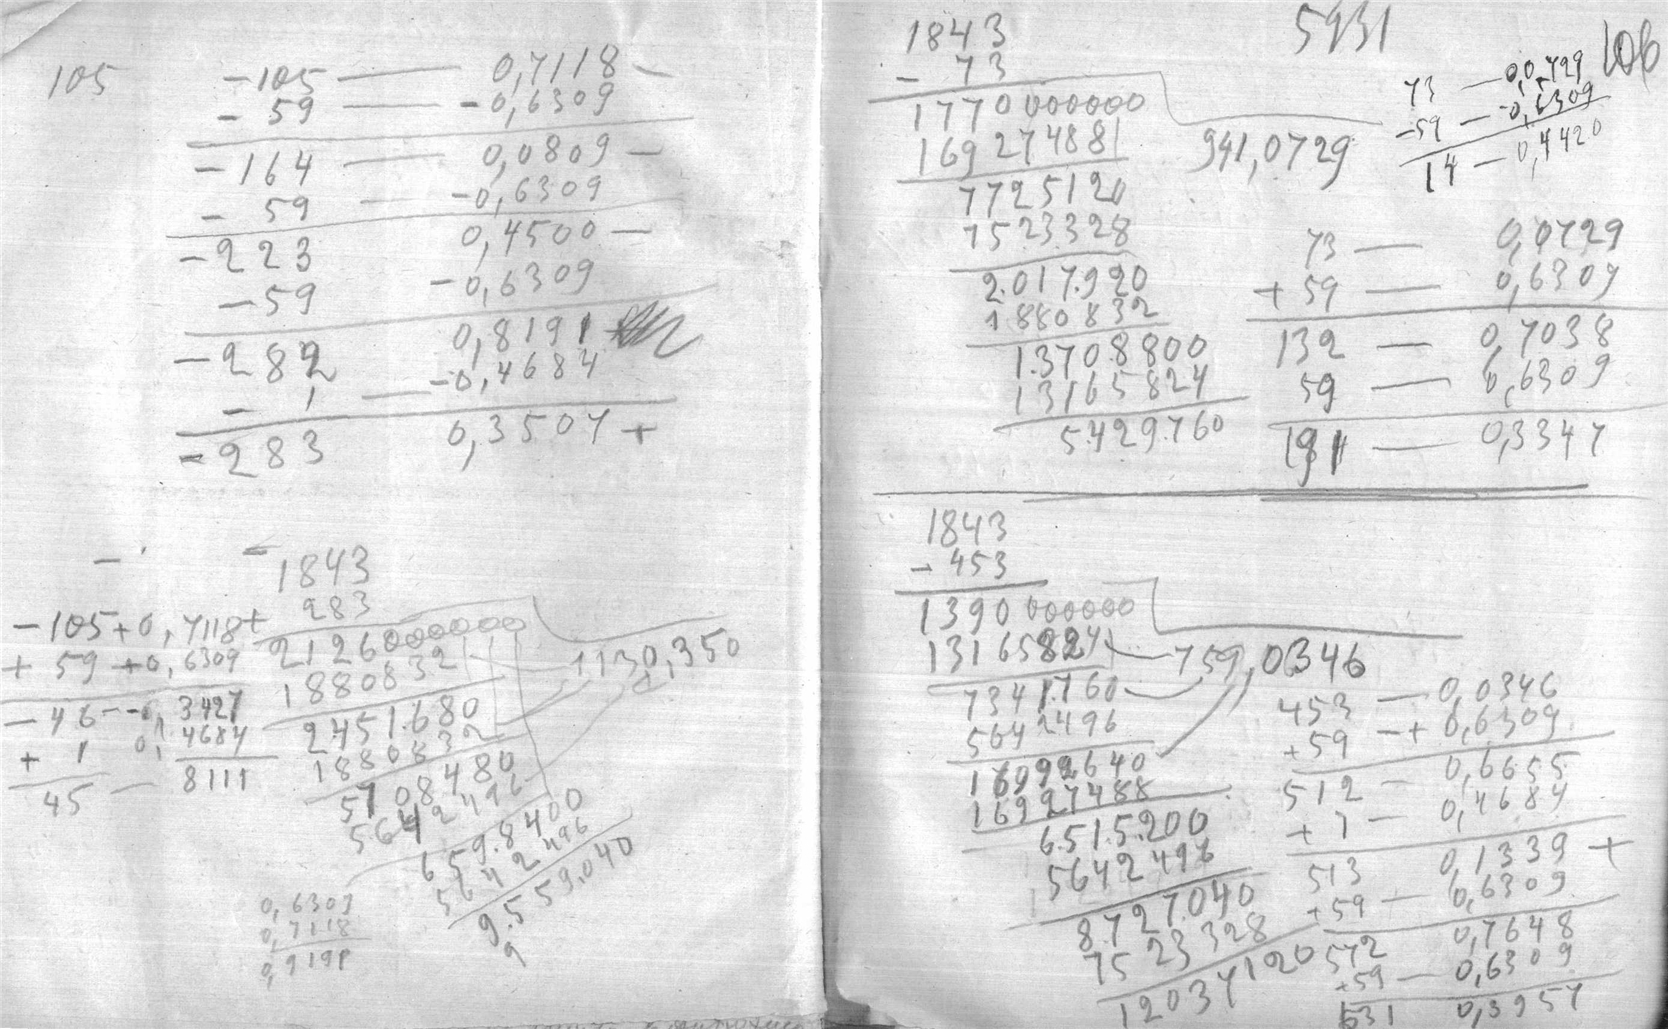 105
-105 — 0,7118 —
- 59 — -0,6309
-164 — 0,0809 —
- 59 — -0,6309
-223 0,4500 —
-59 -0,6309
-282 0,8191
- 1 — -0,4684
-283 0,3507 +
- 1843
283
2126000000
1880832
1130,350
2451.680
1880832
5708480
5642496
659.8400
5642496
9.559.040
9
-105+0,7118+
+ 59 +0,6309
-46--0,3427
+ 1 0,4684
45 — 8111
0,6309
0,7118
0,9191
5931
106
1843
- 73
1770000000
169274881
941,0729
7725120
7523328
2.017.920
1880832
1.3708800
13165824
5.429.760
73 — 0,0729
-59 — -0,6309
14 — 0,4420
73 — 0,0729
+ 59 — 0,6309
132 — 0,7038
59 — 0,6309
191 — 0,3347
1843
- 453
1390000000
13165824
759,0346
7341.760
5642496
16992640
16927488
6.515.200
5642496
8.727.040
7523328
12037120
453 — 0,0346
+59 -+ 0,6309
512 — 0,6655
+ 1 — 0,4684
513 0,1339 +
+59 — 0,6309
572 0,7648
+59 — 0,6309
631 0,3957